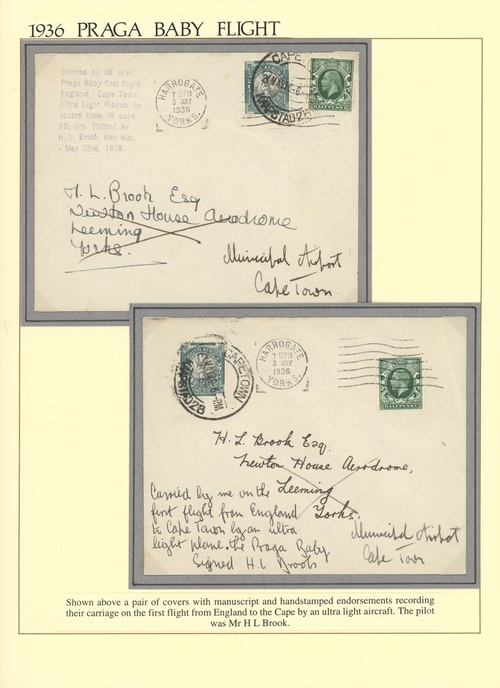 1936 PRAGA BABY FLIGHT
Carried by 36. H.P.
Praga Baby first flight
England - Cape Town.
Ultra Light Planes. In
record time, 16 days
20. hrs. Piloted by
H. L. Brook, May 6th.
- May 23rd. 1936.
HARROGATE
7
3 MAY
1936
YORKS.
HALFPENNY
H. L. Brook Esq
Newton House Aerodrome
Leeming
Yorks.
Municipal Airport
Cape Town.
CAPETOWN
HARROGATE
7
3 MAY
1936
YORKS.
HALFPENNY
H. L. Brook Esq.
Newton House Aerodrome,
Leeming
Yorks.
Carried by me on the
first flight from England
to Cape Town by an ultra
light plane. the Praga Baby
Signed H L Brook
Municipal Airport
Cape Town
Shown above a pair of covers with manuscript and handstamped endorsements recording
their carriage on the first flight from England to the Cape by an ultra light aircraft. The pilot
was Mr H L Brook.